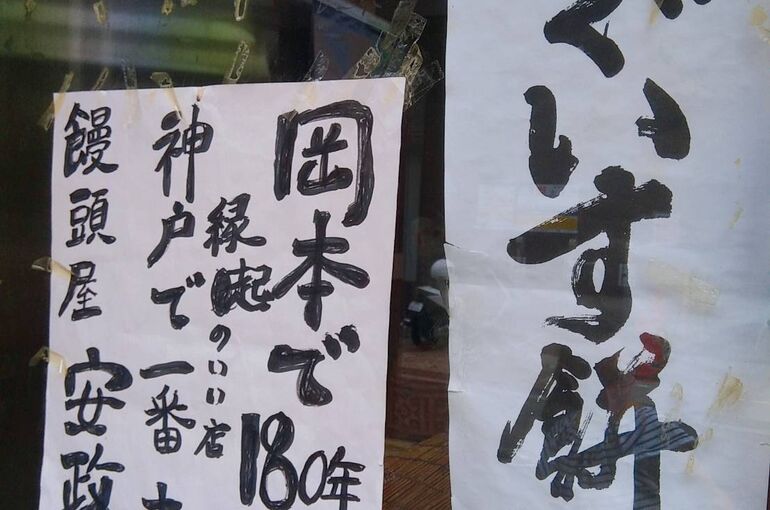 ぐいす餅
岡本で180年
縁起のいい店
神戸で一番
饅頭屋 安政